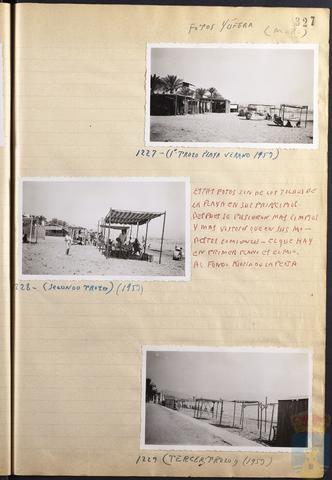 FOTOS YÚFERA
327
1227-(1º TROZO PLAYA VERANO 1959)
ESTAS FOTOS SON DE LOS TOLDOS DE
LA PLAYA EN SUS PRINCIPIOS.
DESPUES SE PUSIERON MAS LIMPIOS
Y MAS VISTOSOS QUE EN SUS MO-
DESTOS COMIENZOS - EL QUE HAY
EN PRIMER PLANO ES EL MIO.
AL FONDO
228 - (SEGUNDO TROZO) (1959)
1229 (TERCER TROZO) (1959)